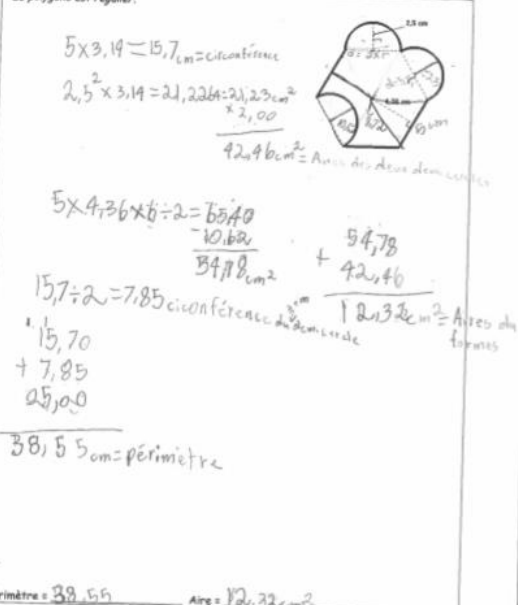 5 x 3,14 = 15,7 cm = circonférence
2,5² x 3,14 = 21,2264 = 21,23 cm²
x 2,00
42,46 cm² = Aires des deux demi cercles
2,5 cm
5 x 4,36 x 6 ÷ 2 = 65,40
- 10,62
54,78 cm²
54,78
+ 42,46
12,32 cm² = Aires du
formes
15,7 ÷ 2 = 7,85 ciconférence du demi cercle
15,70
+ 7,85
25,00
38,55 cm = périmètre
rimètre = 38,55
Aire = 12,32 c